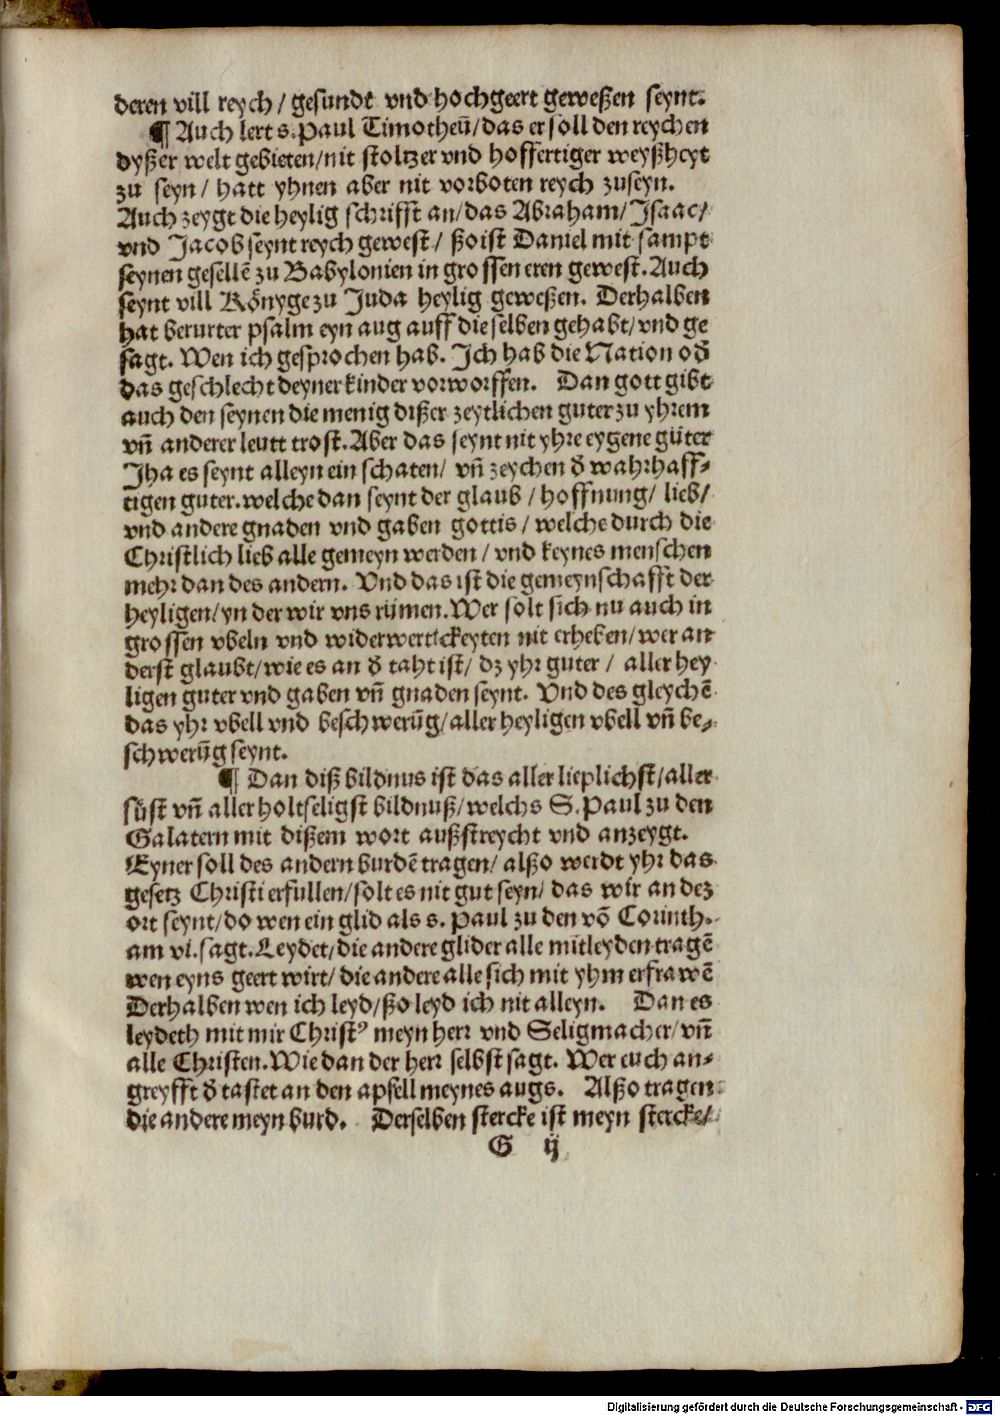 deren vill reych / gesundt vnd hochgeert geweßen seynt.
¶ Auch lert s. Paul Timotheū / das er soll den reychen
dyßer welt gebieten / nit stoltzer vnd hoffertiger weyßheyt
zu seyn / hatt yhnen aber nit vorboten reych zuseyn.
Auch zeygt die heylig schrifft an / das Abraham / Isaac /
vnd Jacob seynt reych gewest / ßo ist Daniel mit sampt
seynen gesellē zu Babylonien in grossen eren gewest. Auch
seynt vill Könyge zu Juda heylig geweßen. Derhalben
hat berurter psalm eyn aug auff die selben gehabt / vnd ge
sagt. Wen ich gesprochen hab. Ich hab die Nation oď
das geschlecht deyner kinder vorworffen. Dan gott gibt
auch den seynen die menig dißer zeytlichen guter zu yhrem
vn̄ anderer leutt trost. Aber das seynt nit yhre eygene güter
Jha es seynt alleyn ein schaten / vn̄ zeychen ď wahrhaff⸗
tigen guter. welche dan seynt der glaub / hoffnung / lieb /
vnd andere gnaden vnd gaben gottis / welche durch die
Christlich lieb alle gemeyn werden / vnd keynes menschen
mehr dan des andern. Vnd das ist die gemeynschafft der
heyligen / yn der wir vns rümen. Wer solt sich nu auch in
grossen vbeln vnd widerwertickeyten nit erheben / wer an
derst glaubt / wie es an ď taht ist / dz yhr guter / aller hey
ligen guter vnd gaben vn̄ gnaden seynt. Vnd des gleychē
das yhr vbell vnd beschwerūg / aller heyligen vbell vn̄ be⸗
schwerūg seynt.
¶ Dan diß bildnus ist das aller lieplichst / aller
süst vn̄ aller holtseligst bildnuß / welchs S. Paul zu den
Galatern mit dißem wort außstreycht vnd anzeygt.
Eyner soll des andern burdē tragen / alßo werdt yhr das
gesetz Christi erfullen / solt es nit gut seyn / das wir an dez
ort seynt / do wen ein glid als s. Paul zu den vō Corinth.
am vi. sagt. Leydet / die andere glider alle mitleyden tragē
wen eyns geert wirt / die andere alle sich mit yhm erfrawē
Derhalben wen ich leyd / ßo leyd ich nit alleyn. Dan es
leydeth mit mir Christꝰ meyn herr vnd Seligmacher / vn̄
alle Christen. Wie dan der herr selbst sagt. Wer euch an⸗
greyfft ď tastet an den apfell meynes augs. Alßo tragen
die andere meyn burd. Derselben stercke ist meyn stercke /
G ij
Digitalisierung gefördert durch die Deutsche Forschungsgemeinschaft - DFG